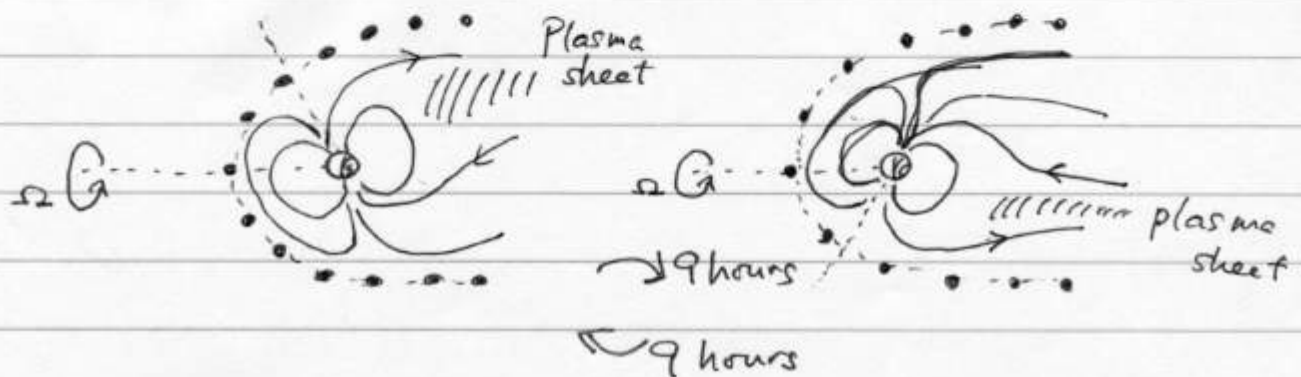 Plasma
sheet
Ω
Ω
plasma
sheet
9 hours
9 hours